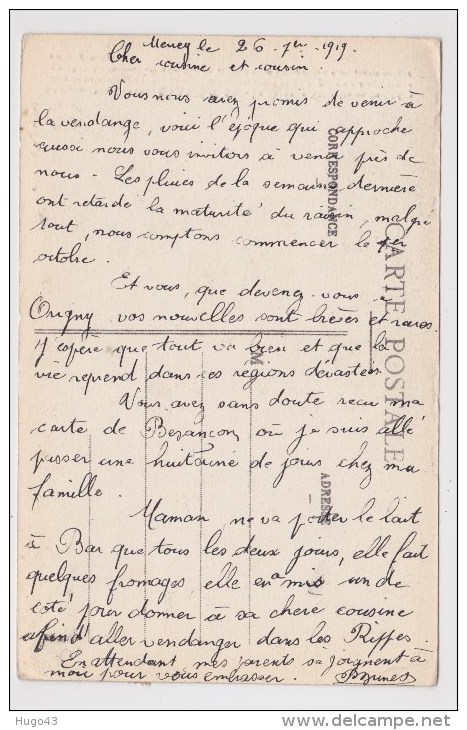 le 26 - 7bre - 1919.
Cher cousine et cousin.
Vous nous avez promis de venir à
la vendange, voici l'époque qui approche
aussi nous vous invitons à venir près de
nous - Les pluies de la semaine dernière
ont retardé la maturité du raisin, malgré
tout, nous comptons commencer le 1er
octobre.
Et vous, que devenez-vous à
Origny vos nouvelles sont brèves et rares.
J'espère que tout va bien et que la
vie reprend dans ces régions dévastées.
Vous avez sans doute reçu ma
carte de Besançon, où je suis allé
passer une huitaine de jours chez ma
famille.
Maman ne va porter le lait
à Bar que tous les deux jours, elle fait
quelques fromages, elle en a mis un de
côté pour donner à sa chère cousine
afin d'aller vendanger dans les Riffes.
En attendant mes parents se joignent à
moi pour vous embrasser.
CARTE POSTALE
CORRESPONDANCE
ADRESSE
M
© Hugo43